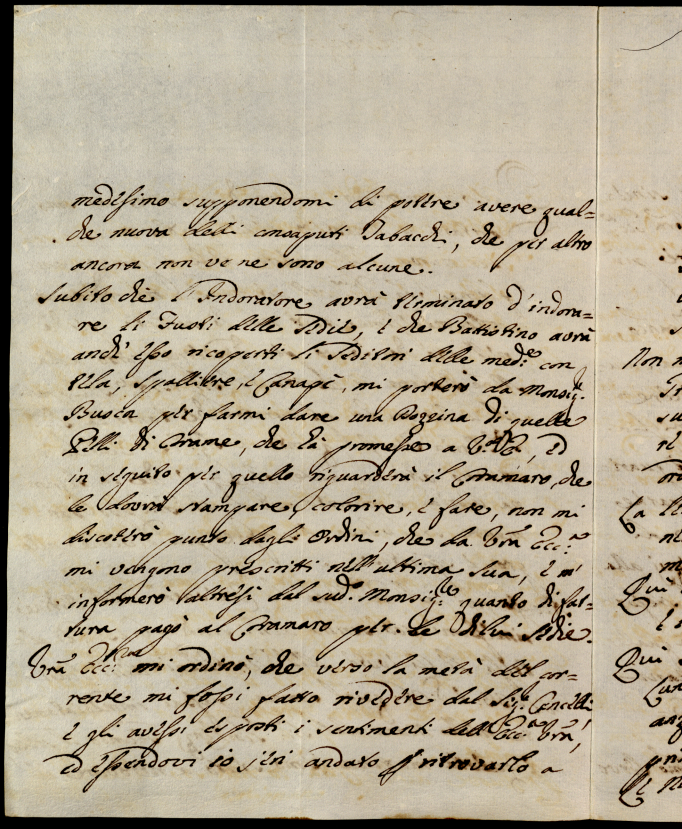 medesimo supponendomi di potere avere qual=
che nuova delli consaputi Tabacchi, che per altro
ancora non ve ne sono alcune.
Subito che l'Indoratore avrà terminato d'indora=
re li Fusti delle Sedie, e che Battistino avrà
anch'esso ricoperti li Seditori delle med.e con
tela, Spalliere, e Canapè, mi porterò da Monsig.r
Busca per farmi dare una Dozzina di quelle
Pelli di Corame, che hà promesse a V.E., ed
in seguito per quello riguarderà il Coramaro, che
le dovrà stampare, colorire, e fare, non mi
discoterò punto dagli ordini, che da Vrã Ecc.a
mi vengono prescritti nell'ultima sua, e m'
informerò altresì dal sud.o Monsig.re quanto di fat=
tura pagò al Coramaro per le di lui Sedie.
Vrã Ecc.a mi ordinò, che verso la metà del cor=
rente mi fossi fatto rivedere dal Sig. Cancelli
e gli avessi esposti i sentimenti dell'Ecc.a Vrã,
ed essendovi io jeri andato p ritrovarlo a
Non